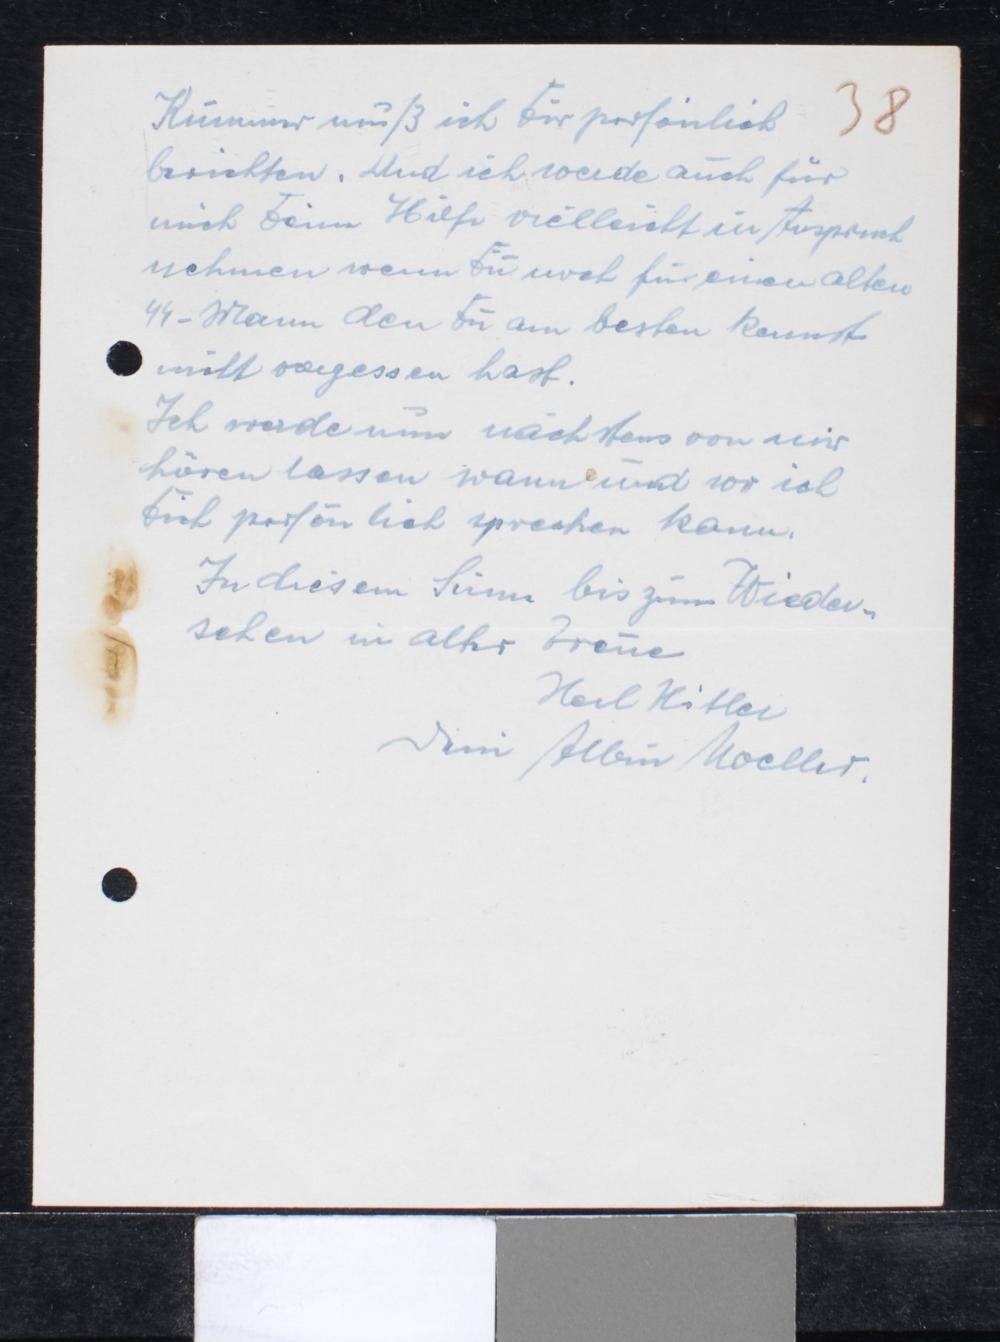 38
Kummer muß ich Dir persönlich
berichten. Und ich werde auch für
mich Deine Hilfe vielleicht in Anspruch
nehmen wenn Du noch für einen alten
SS-Mann den Du am besten kennst
nicht vergessen hast.
Ich werde nun nächstens von mir
hören lassen wann und wo ich
Dich persönlich sprechen kann.
In diesem Sinne bis zum Wieder-
sehen in alter Treue
Heil Hitler
Dein Albin Moeller.